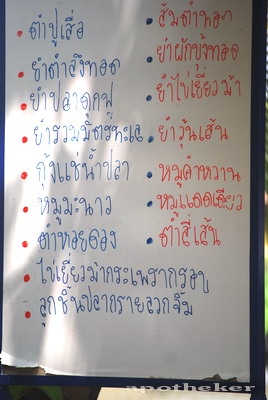 ตำปูเสื่อ
ยำตำลึงทอด
ยำปลาดุกฟู
ยำรวมมิตรทะเล
กุ้งแช่น้ำปลา
หมูมะนาว
ตำหอยดอง
ไข่เยี่ยวม้ากระเพรากรอบ
ลูกชิ้นปลากรายลวกจิ้ม
ส้มตำทอด
ยำผักบุ้งทอด
ยำไข่เยี่ยวม้า
ยำวุ้นเส้น
หมูคำหวาน
หมูแดดเดียว
ตำสี่เส้น
apotheker